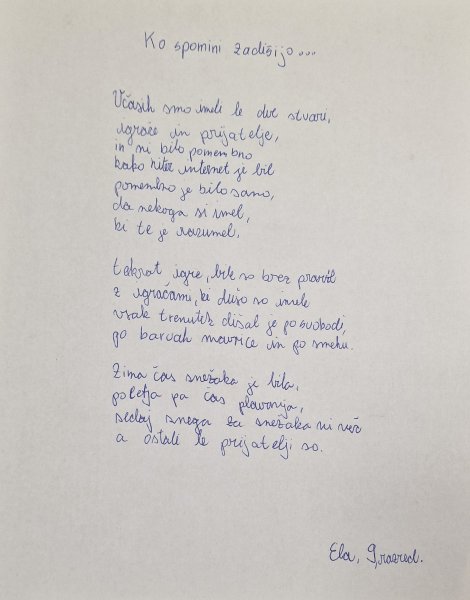 Ko spomini zadišijo...
Včasih smo imeli le dve stvari,
igrače in prijatelje,
in ni bilo pomembno
kako hiter internet je bil
pomembno je bilo samo,
da nekoga si imel,
ki te je razumel.
takrat igre, bile so brez pravil
z igračami, ki dušo so imele
vsak trenutek dišal je po svobodi,
po barvah mavrice in po smehu.
Zima čas snežaka je bila,
poletja pa čas plavanja,
sedaj snega za snežaka ni več
a ostali le prijatelji so.
Ela, 9. razred.